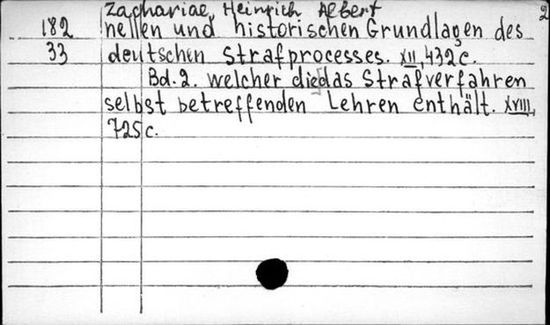 Zachariae, Heinrich Albert 2
182 nellen und historischen Grundlagen des
33 deutschen Strafprocesses. XII, 432 c.
Bd. 2. welcher die das Strafverfahren
selbst betreffenden Lehren enthält. XVIII,
725 c.